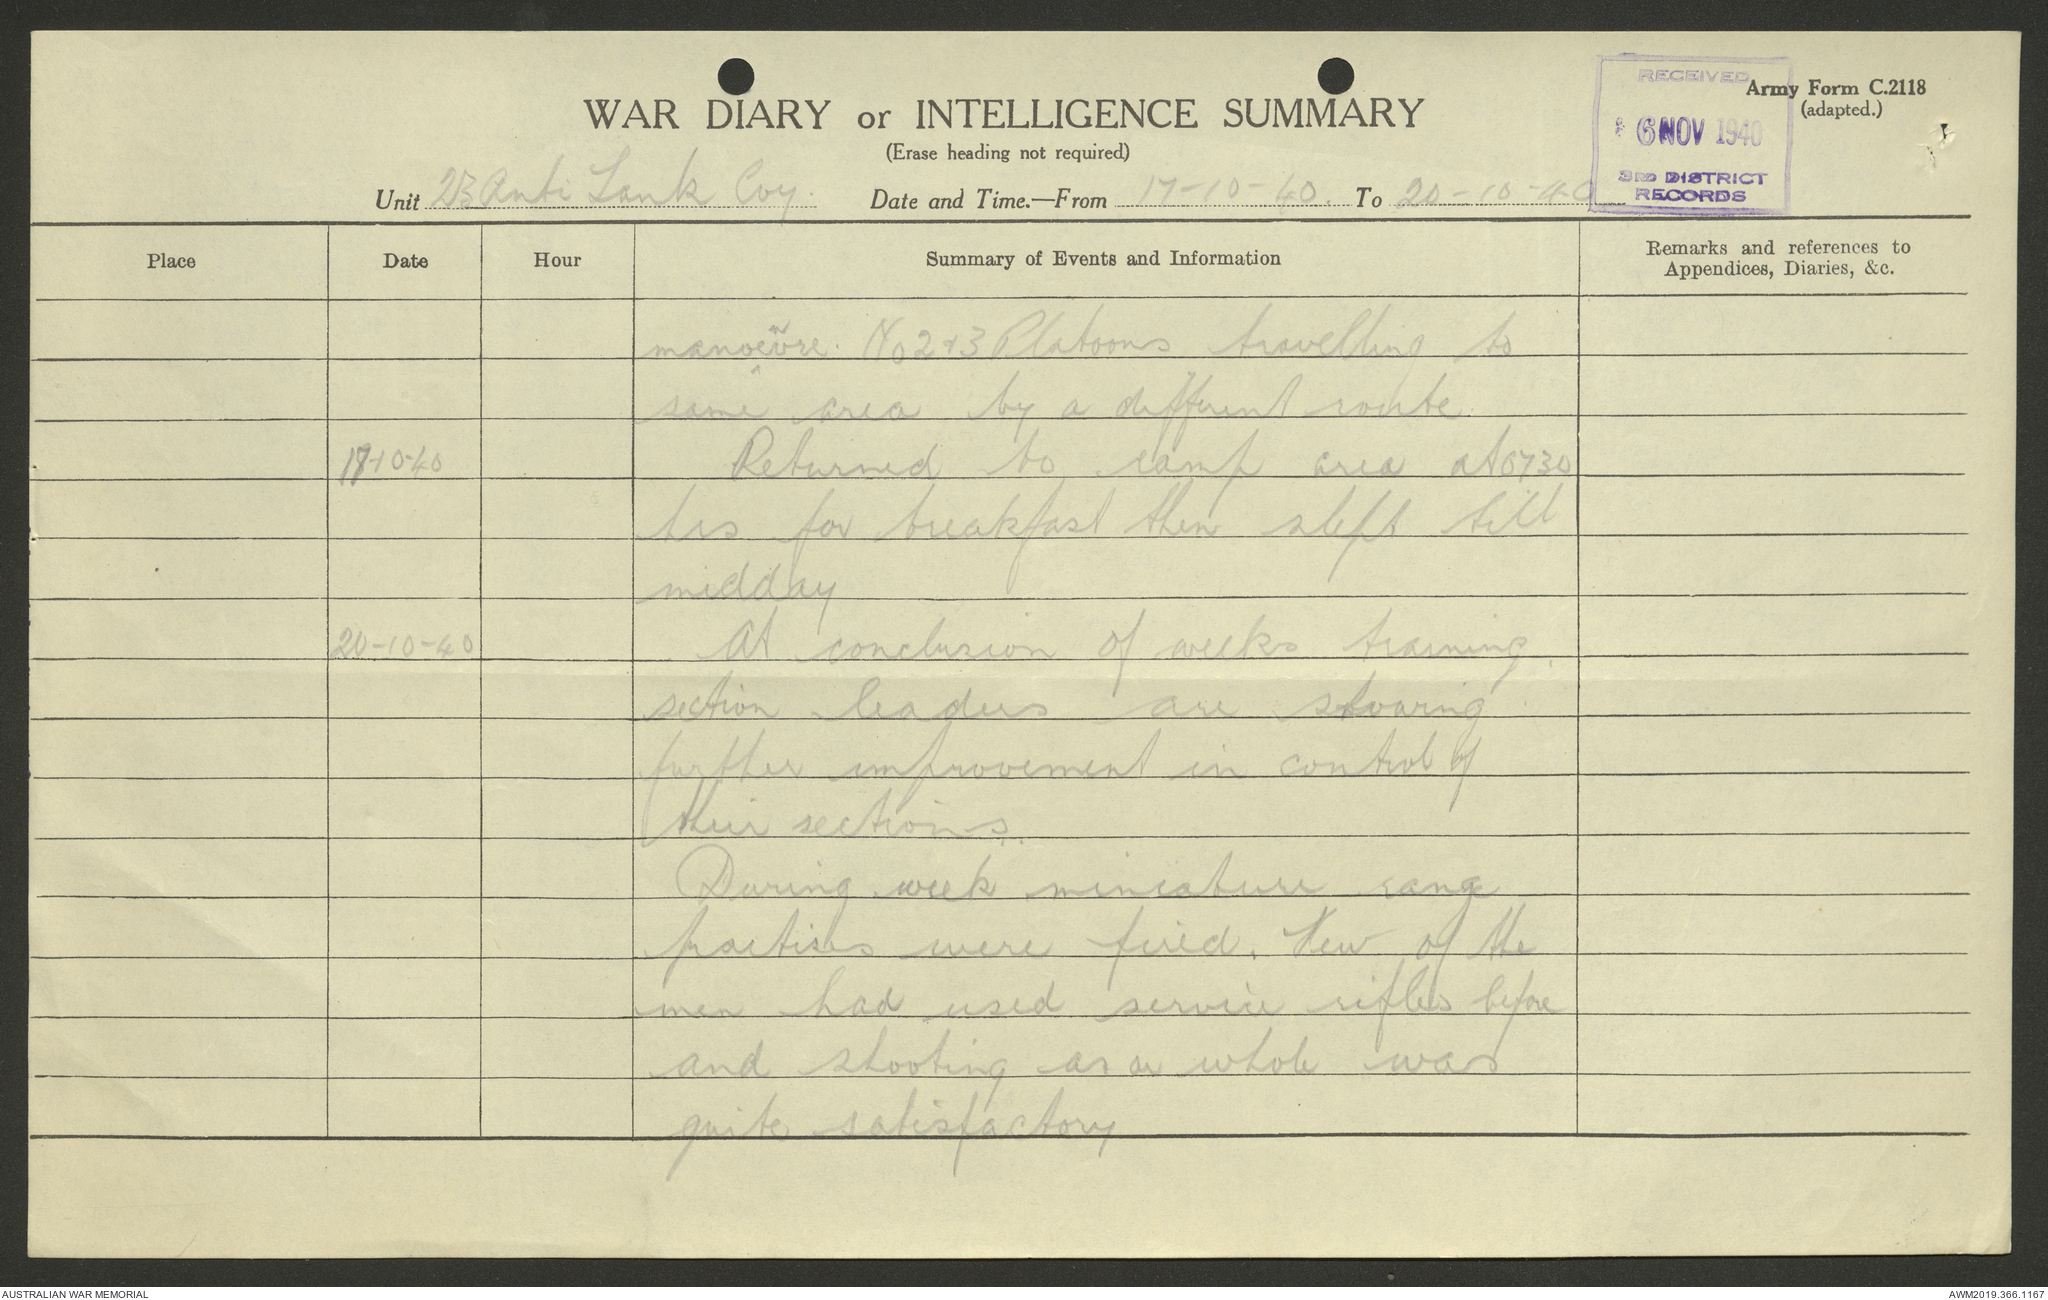 RECEIVED
6 NOV 1940
3RD DISTRICT
RECORDS
Army Form C.2118
(adapted.)
WAR DIARY or INTELLIGENCE SUMMARY
(Erase heading not required)
Unit 23 Anti Tank Coy. Date and Time.—From 17-10-40. To 20-10-40
Place Date Hour Summary of Events and Information Remarks and references to
Appendices, Diaries, &c.
manoeuvre. No 2 & 3 Platoons travelling to
same area by a different route.
18-10-40 Returned to camp area at 0730
hrs for breakfast then slept till
midday
20-10-40 At conclusion of weeks training
section leaders are showing
further improvement in control of
their sections.
During week miniature range
practises were fired. Few of the
men had used service rifles before
and shooting as a whole was
quite satisfactory
AUSTRALIAN WAR MEMORIAL
AWM2019.366.1167